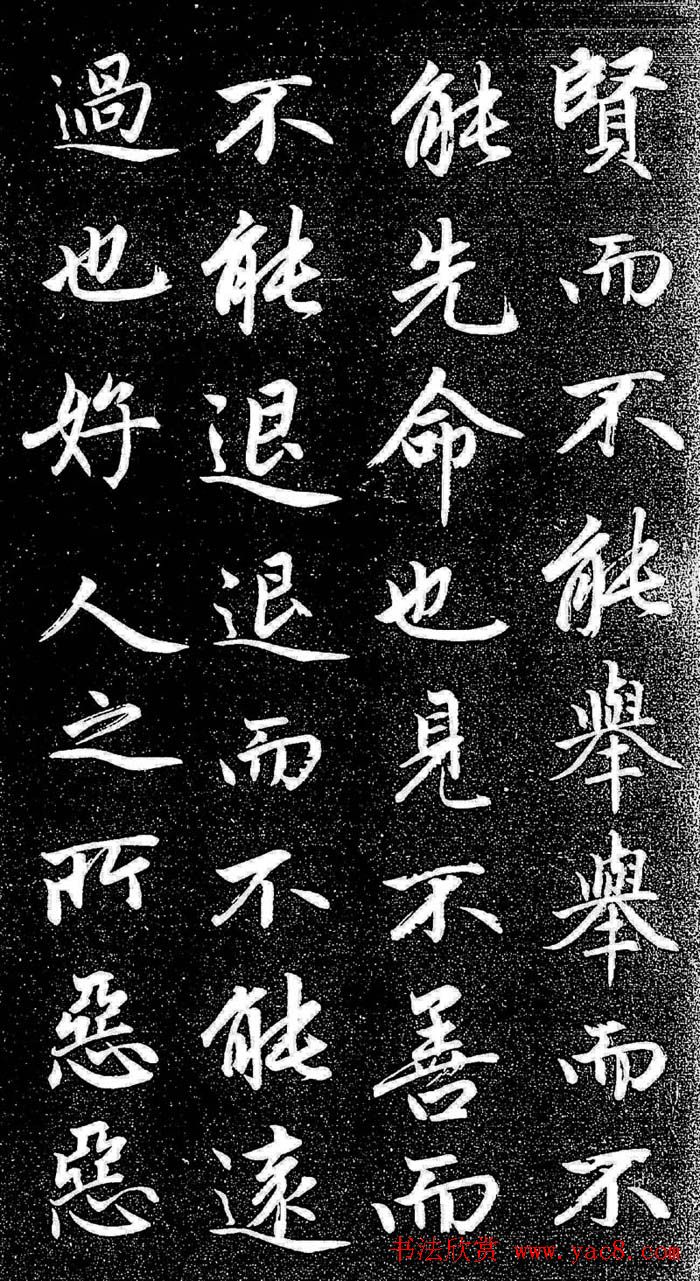 賢而不能舉舉而不
能先命也見不善而
不能退退而不能遠
過也好人之所惡惡
书法欣赏 www.yac8.com